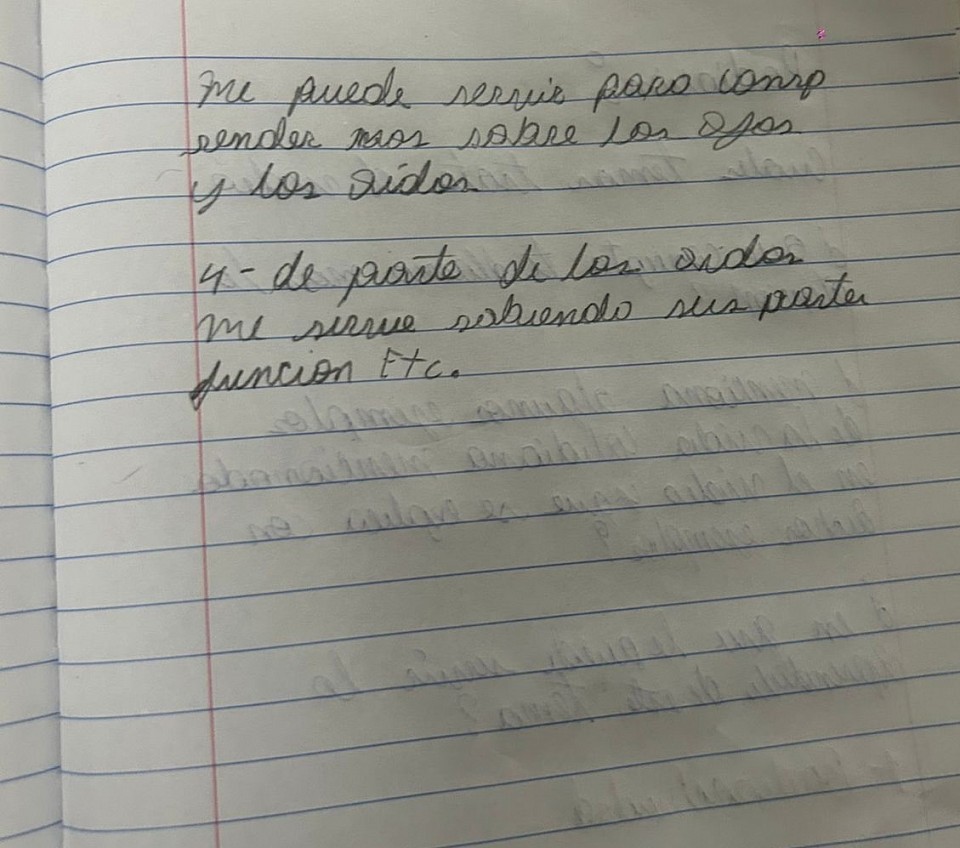 me puede servir para comp
render mas sobre los ojos
y los oidos
4- de parte de los oidos
me sirve sabiendo sus partes
funcion Etc.